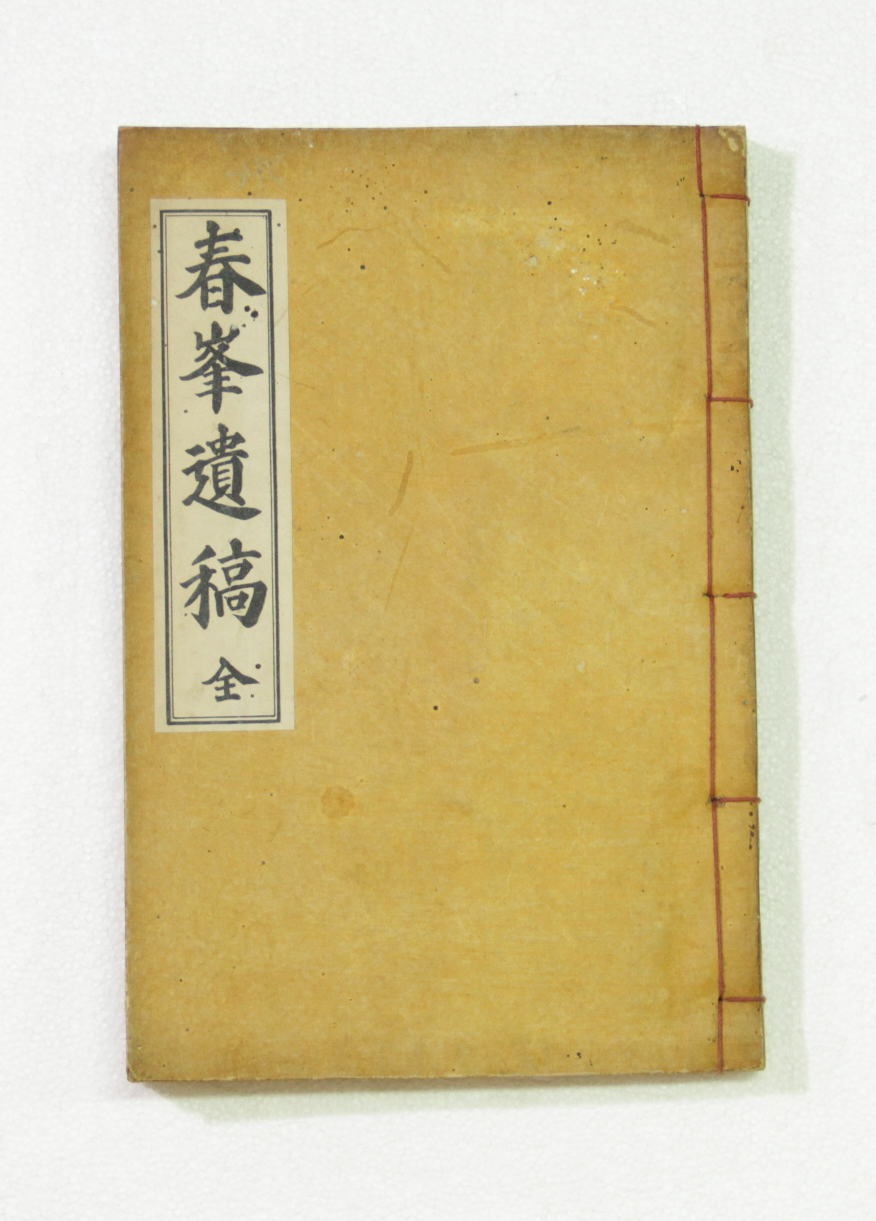 春峯遺稿 全